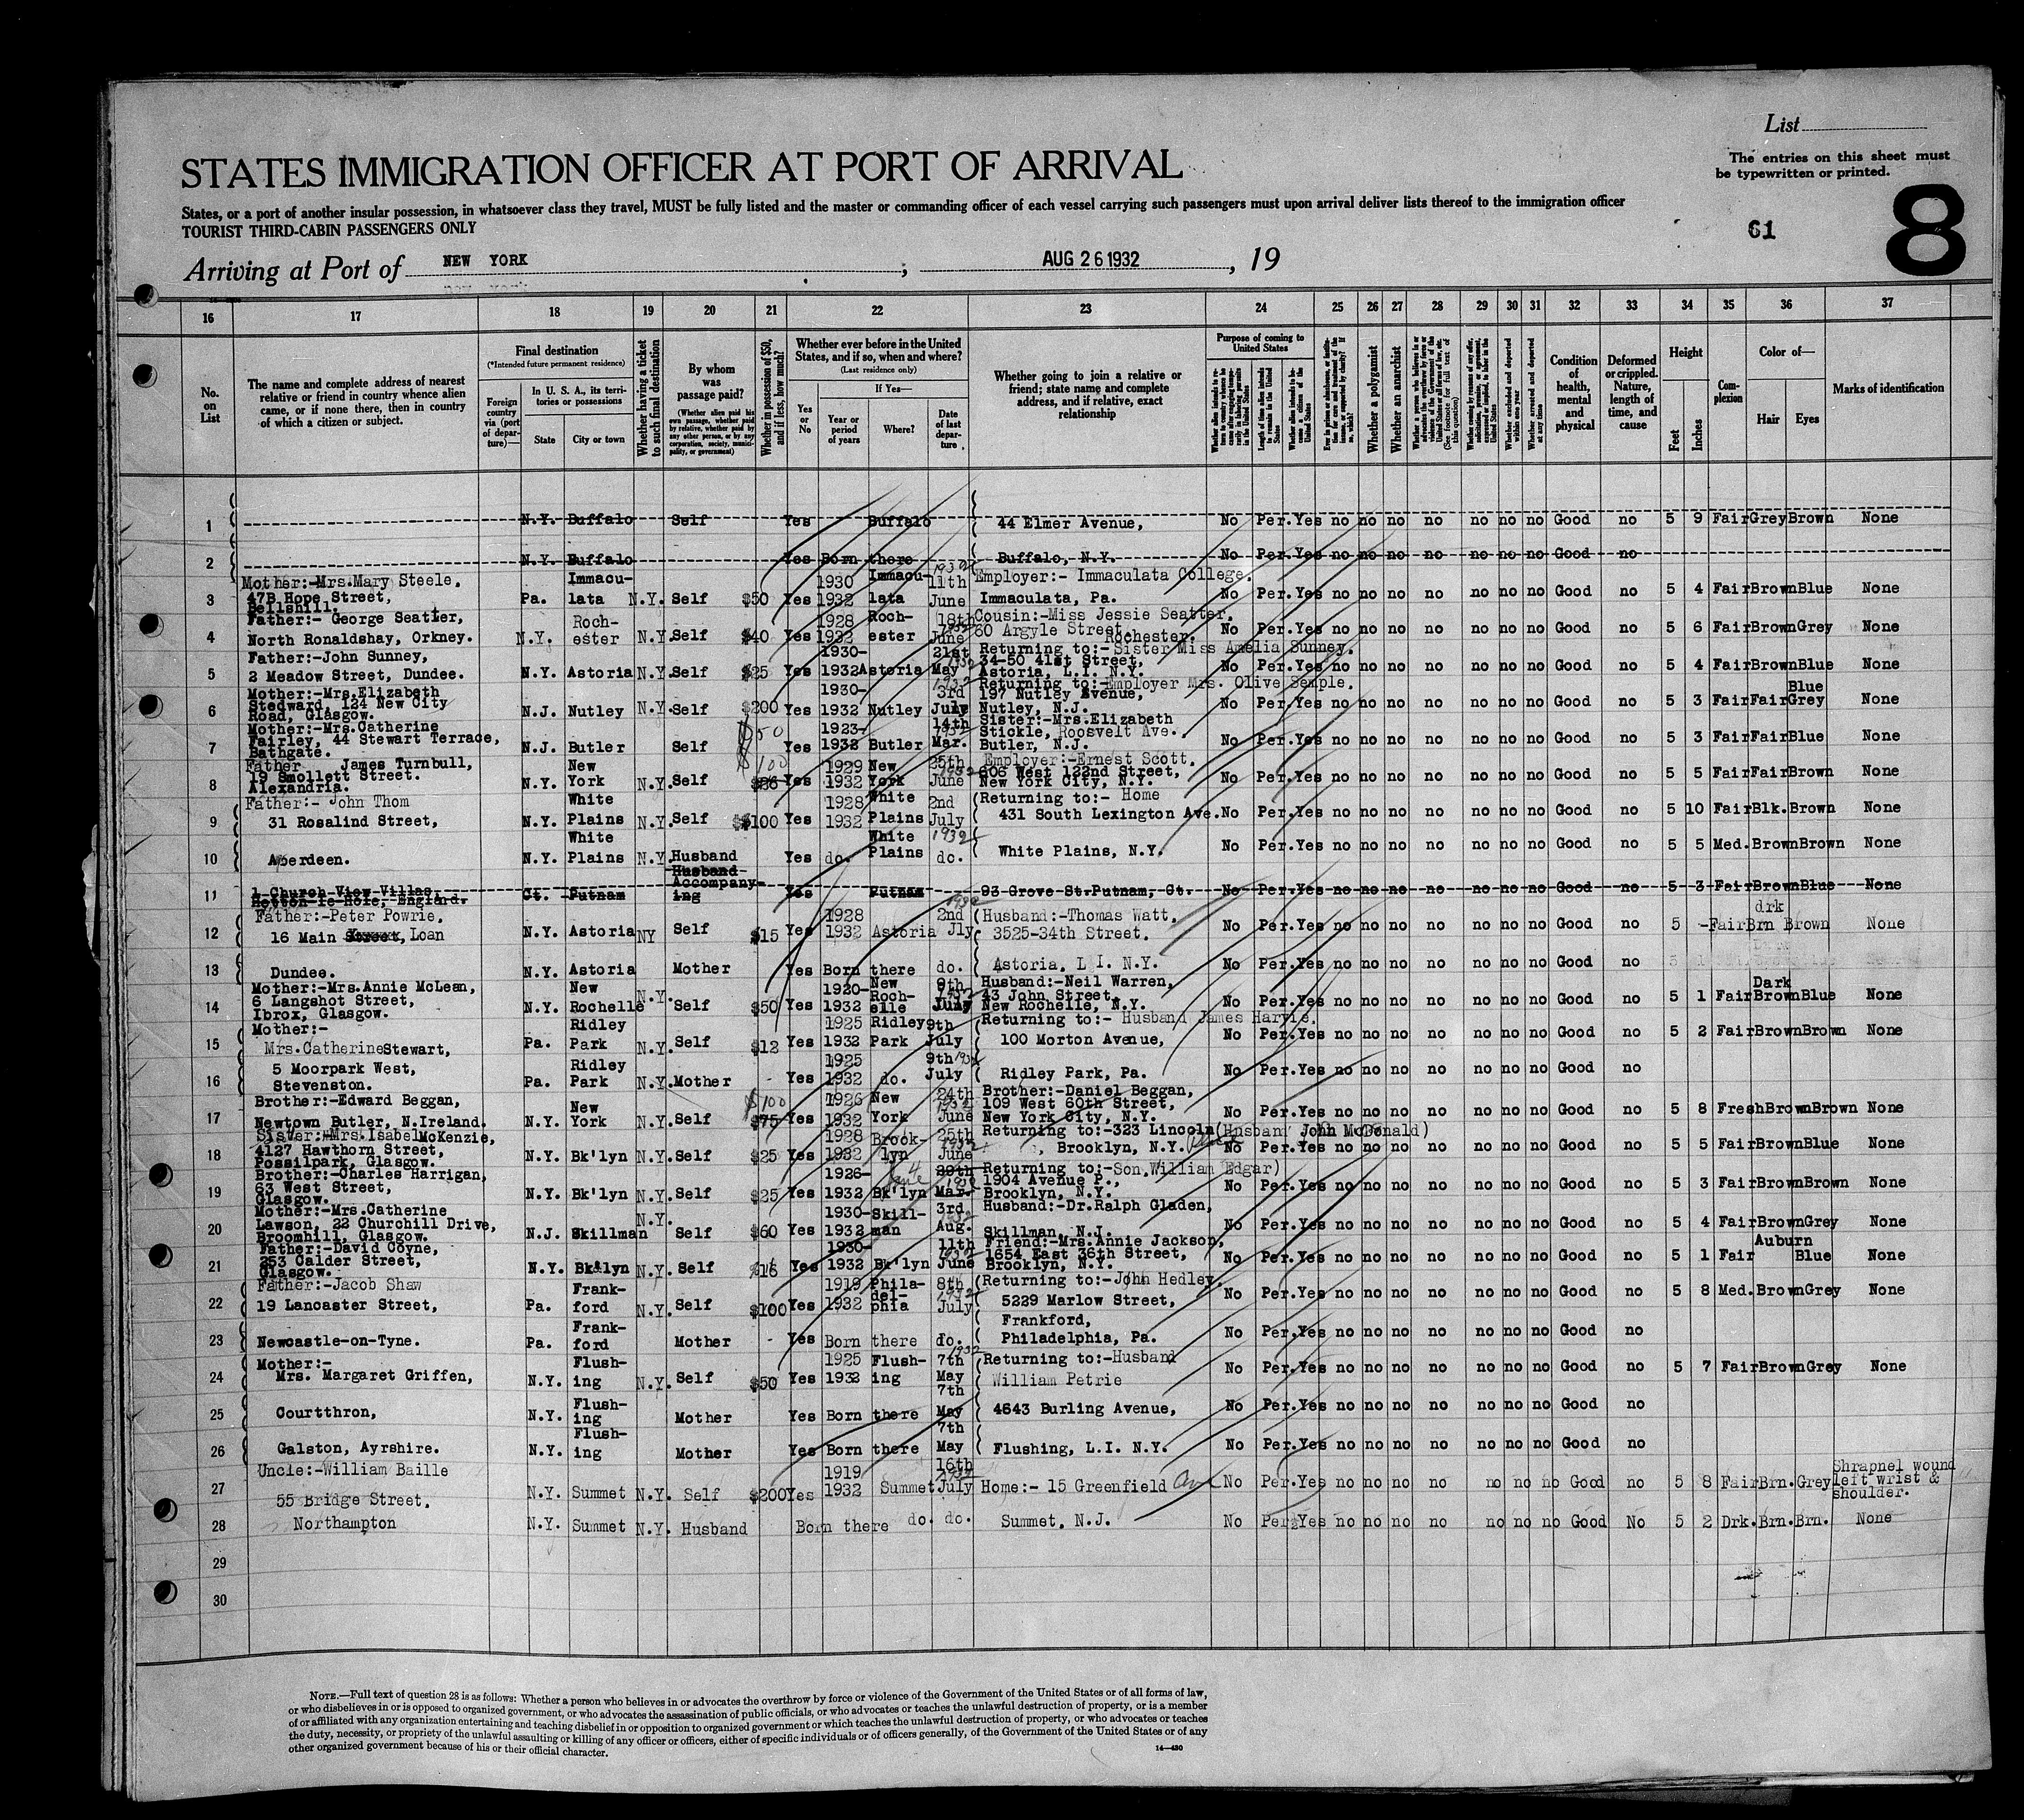 List
The entries on this sheet must
be typewritten or printed.
STATES IMMIGRATION OFFICER AT PORT OF ARRIVAL
8
States, or a port of another insular possession, in whatsoever class they travel, MUST be fully listed and the master or commanding officer of each vessel carrying such passengers must upon arrival deliver lists thereof to the immigration officer
TOURIST THIRD-CABIN PASSENGERS ONLY
61
Arriving at Port of NEW YORK ; AUG 26 1932 , 19
16 17 18 19 20 21 22 23 24 25 26 27 28 29 30 31 32 33 34 35 36 37
No. on List
The name and complete address of nearest relative or friend in country whence alien came, or if none there, then in country of which a citizen or subject.
Final destination
(*Intended future permanent residence)
Foreign country via (port of departure)—
In U. S. A., its territories or possessions
State
City or town
Whether having a ticket to such final destination
By whom was passage paid?
(Whether alien paid his own passage, whether paid by relative, whether paid by any other person, or by any corporation, society, municipality, or government)
Whether in possession of $50, and if less, how much?
Whether ever before in the United States, and if so, when and where?
(Last residence only)
Yes or No
If Yes—
Year or period of years
Where?
Date of last departure
Whether going to join a relative or friend; state name and complete address, and if relative, exact relationship
Purpose of coming to United States
Length of time alien intends to remain in the United States
Whether alien intends to become a citizen of the United States
Whether a polygamist
Whether an anarchist
Whether arrested and deported at any time
Condition of health, mental and physical
Deformed or crippled. Nature, length of time, and cause
Height
Feet
Inches
Complexion
Color of—
Hair
Eyes
Marks of identification
1 N.Y. Buffalo Self Yes Buffalo 44 Elmer Avenue, No Per. Yes no no no no no no no Good no 5 9 Fair Grey Brown None
2 N.Y. Buffalo Yes Born there Buffalo, N.Y. No Per. Yes no no no no no no no Good no
3 Mother:-Mrs.Mary Steele. 47B Hope Street, Bellshill. Pa. Immacu-lata N.Y. Self $50 Yes 1930 1932 Immacu-lata 11th June 1932 Employer:- Immaculata College. Immaculata, Pa. No Per. Yes no no no no no no no Good no 5 4 Fair Brown Blue None
4 Father:- George Seatter, North Ronaldshay, Orkney. N.Y. Roch-ester N.Y. Self $40 Yes 1928 1932 Roch-ester 18th June 1932 Cousin:-Miss Jessie Seatter. 60 Argyle Street, Rochester. No Per. Yes no no no no no no no Good no 5 6 Fair Brown Grey None
5 Father:-John Sunney, 2 Meadow Street, Dundee. N.Y. Astoria N.Y. Self $25 Yes 1930-1932 Astoria 21st May 1932 Returning to:-Sister Miss Amelia Sunney. 34-50 41st Street, Astoria, L.I. N.Y. No Per. Yes no no no no no no no Good no 5 4 Fair Brown Blue None
6 Mother:-Mrs.Elizabeth Stedward, 124 New City Road, Glasgow. N.J. Nutley N.Y. Self $200 Yes 1930-1932 Nutley 3rd July 1932 Returning to:-Employer Mrs. Olive Semple. 197 Nutley Avenue, Nutley, N.J. No Per. Yes no no no no no no no Good no 5 3 Fair Fair Blue Grey None
7 Mother:-Mrs.Catherine Fairley, 44 Stewart Terrace, Bathgate. N.J. Butler Self $50 Yes 1923-1932 Butler 14th Mar. 1932 Sister:-Mrs.Elizabeth Stickle, Roosvelt Ave. Butler, N.J. No Per. Yes no no no no no no no Good no 5 3 Fair Fair Blue None
8 Father James Turnbull, 19 Smollett Street. Alexandria. N.Y. New York N.Y. Self $100 $26 Yes 1929 1932 New York 25th June 1932 Employer:-Ernest Scott. 606 West 122nd Street, New York City, N.Y. No Per. Yes no no no no no no no Good no 5 5 Fair Fair Brown None
9 Father:- John Thom 31 Rosalind Street, N.Y. White Plains N.Y. Self $100 Yes 1928 1932 White Plains 2nd July 1932 Returning to:- Home 431 South Lexington Ave. No Per. Yes no no no no no no no Good no 5 10 Fair Blk. Brown None
10 Aberdeen. N.Y. White Plains N.Y. Husband Yes do. White Plains do. White Plains, N.Y. No Per. Yes no no no no no no no Good no 5 5 Med. Brown Brown None
11 1 Church View Villas, Hetton-le-Hole, England. Ct. Putnam Husband Accompany-ing Yes Putnam 93 Grove St.Putnam, Ct. No Per. Yes no no no no no no no Good no 5 3 Fair Brown Blue None
12 Father:-Peter Powrie. 16 Main Street, Loan N.Y. Astoria NY Self $15 Yes 1928 1932 Astoria 2nd Jly. 1932 Husband:-Thomas Watt. 3525-34th Street. No Per. Yes no no no no no no no Good no 5 - Fair drk Brn Brown None
13 Dundee. N.Y. Astoria Mother Yes Born there do. Astoria, L I. N.Y. No Per. Yes no no no no no no no Good no
14 Mother:-Mrs.Annie McLean, 6 Langshot Street, Ibrox, Glasgow. N.Y. New Rochelle N.Y. Self $50 Yes 1920-1932 New Roch-elle 9th July 1932 Husband:-Neil Warren, 43 John Street, New Rochelle, N.Y. No Per. Yes no no no no no no no Good no 5 1 Fair Dark Brown Blue None
15 Mother:- Mrs.Catherine Stewart, Pa. Ridley Park N.Y. Self $12 Yes 1925 1932 Ridley Park 9th July Returning to:- Husband James Harvie. 100 Morton Avenue, No Per. Yes no no no no no no no Good no 5 2 Fair Brown Brown None
16 5 Moorpark West, Stevenston. Pa. Ridley Park N.Y. Mother - Yes 1925 1932 do. 9th July 1932 Ridley Park, Pa. No Per. Yes no no no no no no no Good no
17 Brother:-Edward Beggan, Newtown Butler, N.Ireland. N.Y. New York N.Y. Self $100 $75 Yes 1926 1932 New York 24th June 1932 Brother:-Daniel Beggan, 109 West 60th Street, New York City, N.Y. No Per. Yes no no no no no no no Good no 5 8 Fresh Brown Brown None
18 Sister:-Mrs.Isabel McKenzie, 4127 Hawthorn Street, Possilpark, Glasgow. N.Y. Bk'lyn N.Y. Self $25 Yes 1928 1932 Brook-lyn 25th June 1932 Returning to:-323 Lincoln (Husband John McDonald) Place, Brooklyn, N.Y. No Per. Yes no no no no no no no Good no 5 5 Fair Brown Blue None
19 Brother:-Charles Harrigan, 63 West Street, Glasgow. N.Y. Bk'lyn N.Y. Self $25 Yes 1926-1932 Bk'lyn June 4 Mar. 1932 Returning to:-Son.William Edgar) 1904 Avenue P., Brooklyn, N.Y. No Per. Yes no no no no no no no Good no 5 3 Fair Brown Brown None
20 Mother:-Mrs.Catherine Lawson, 22 Churchill Drive, Broomhill, Glasgow. N.J. Skillman N.Y. Self $60 Yes 1930-1932 Skill-man 3rd Aug. 1932 Husband:-Dr.Ralph Gladen, Skillman, N.J. No Per. Yes no no no no no no no Good no 5 4 Fair Brown Grey None
21 Father:-David Coyne, 253 Calder Street, Glasgow. N.Y. Bk'lyn N.Y. Self $16 Yes 1930-1932 Bk'lyn 11th June 1932 Friend:-Mrs.Annie Jackson, 1654 East 36th Street, Brooklyn, N.Y. No Per. Yes no no no no no no no Good no 5 1 Fair Auburn Blue None
22 Father:-Jacob Shaw 19 Lancaster Street, Pa. Frank-ford N.Y. Self $100 Yes 1919 1932 Phila-del-phia 8th July 1932 Returning to:-John Hedley. 5229 Marlow Street, No Per. Yes no no no no no no no Good no 5 8 Med. Brown Grey None
23 Newcastle-on-Tyne. Pa. Frank-ford Mother - Yes Born there do. Frankford, Philadelphia, Pa. No Per. Yes no no no no no no no Good no
24 Mother:- Mrs. Margaret Griffen, N.Y. Flush-ing N.Y. Self $50 Yes 1925 1932 Flush-ing 7th May 1932 Returning to:-Husband William Petrie No Per. Yes no no no no no no no Good no 5 7 Fair Brown Grey None
25 Courtthron, N.Y. Flush-ing Mother Yes Born there 7th May 4643 Burling Avenue, No Per. Yes no no no no no no no Good no
26 Galston, Ayrshire. N.Y. Flush-ing Mother Yes Born there 7th May Flushing, L.I. N.Y. No Per. Yes no no no no no no no Good no
27 Uncle:-William Baille 55 Bridge Street. N.Y. Summet N.Y. Self $200 Yes 1919 1932 Summet 16th July 1932 Home:- 15 Greenfield Av No Per. Yes no no no no no no no Good no 5 8 Fair Brn. Grey Shrapnel wound left wrist & shoulder.
28 Northampton N.Y. Summet N.Y. Husband Born there do. do. Summet, N.J. No Per Yes no no no no no no no Good No 5 2 Drk. Brn. Brn. None
29
30
NOTE.—Full text of question 28 is as follows: Whether a person who believes in or advocates the overthrow by force or violence of the Government of the United States or of all forms of law,
or who disbelieves in or is opposed to organized government, or who advocates the assassination of public officials, or who advocates or teaches the unlawful destruction of property, or is a member
of or affiliated with any organization entertaining and teaching disbelief in or opposition to organized government or which teaches the unlawful destruction of property, or who advocates or teaches
the duty, necessity, or propriety of the unlawful assaulting or killing of any officer or officers, either of specific individuals or of officers generally, of the Government of the United States or of any
other organized government because of his or their official character.
14—430